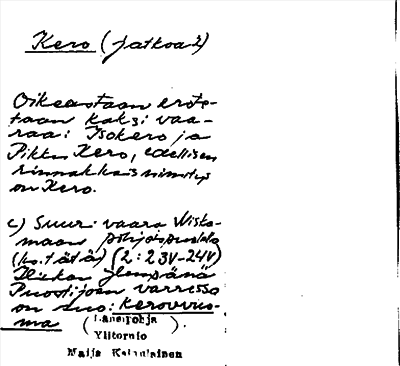 Kero (jatkoa 2)
Oikeastaan erote-
taan kaksi vaa-
raa: Isokero ja
Pikku Kero, edellisen
rinnakkaisnimitys
on Kero.
c) Suuri vaara Wiska-
maan pohjoispuolella
(ks. tätä) (2:23V-24V)
ylempänä
Puostijoen varressa
on suo: Kerovuo-
ma (Länsipohja
).
Ylitornio
Maija